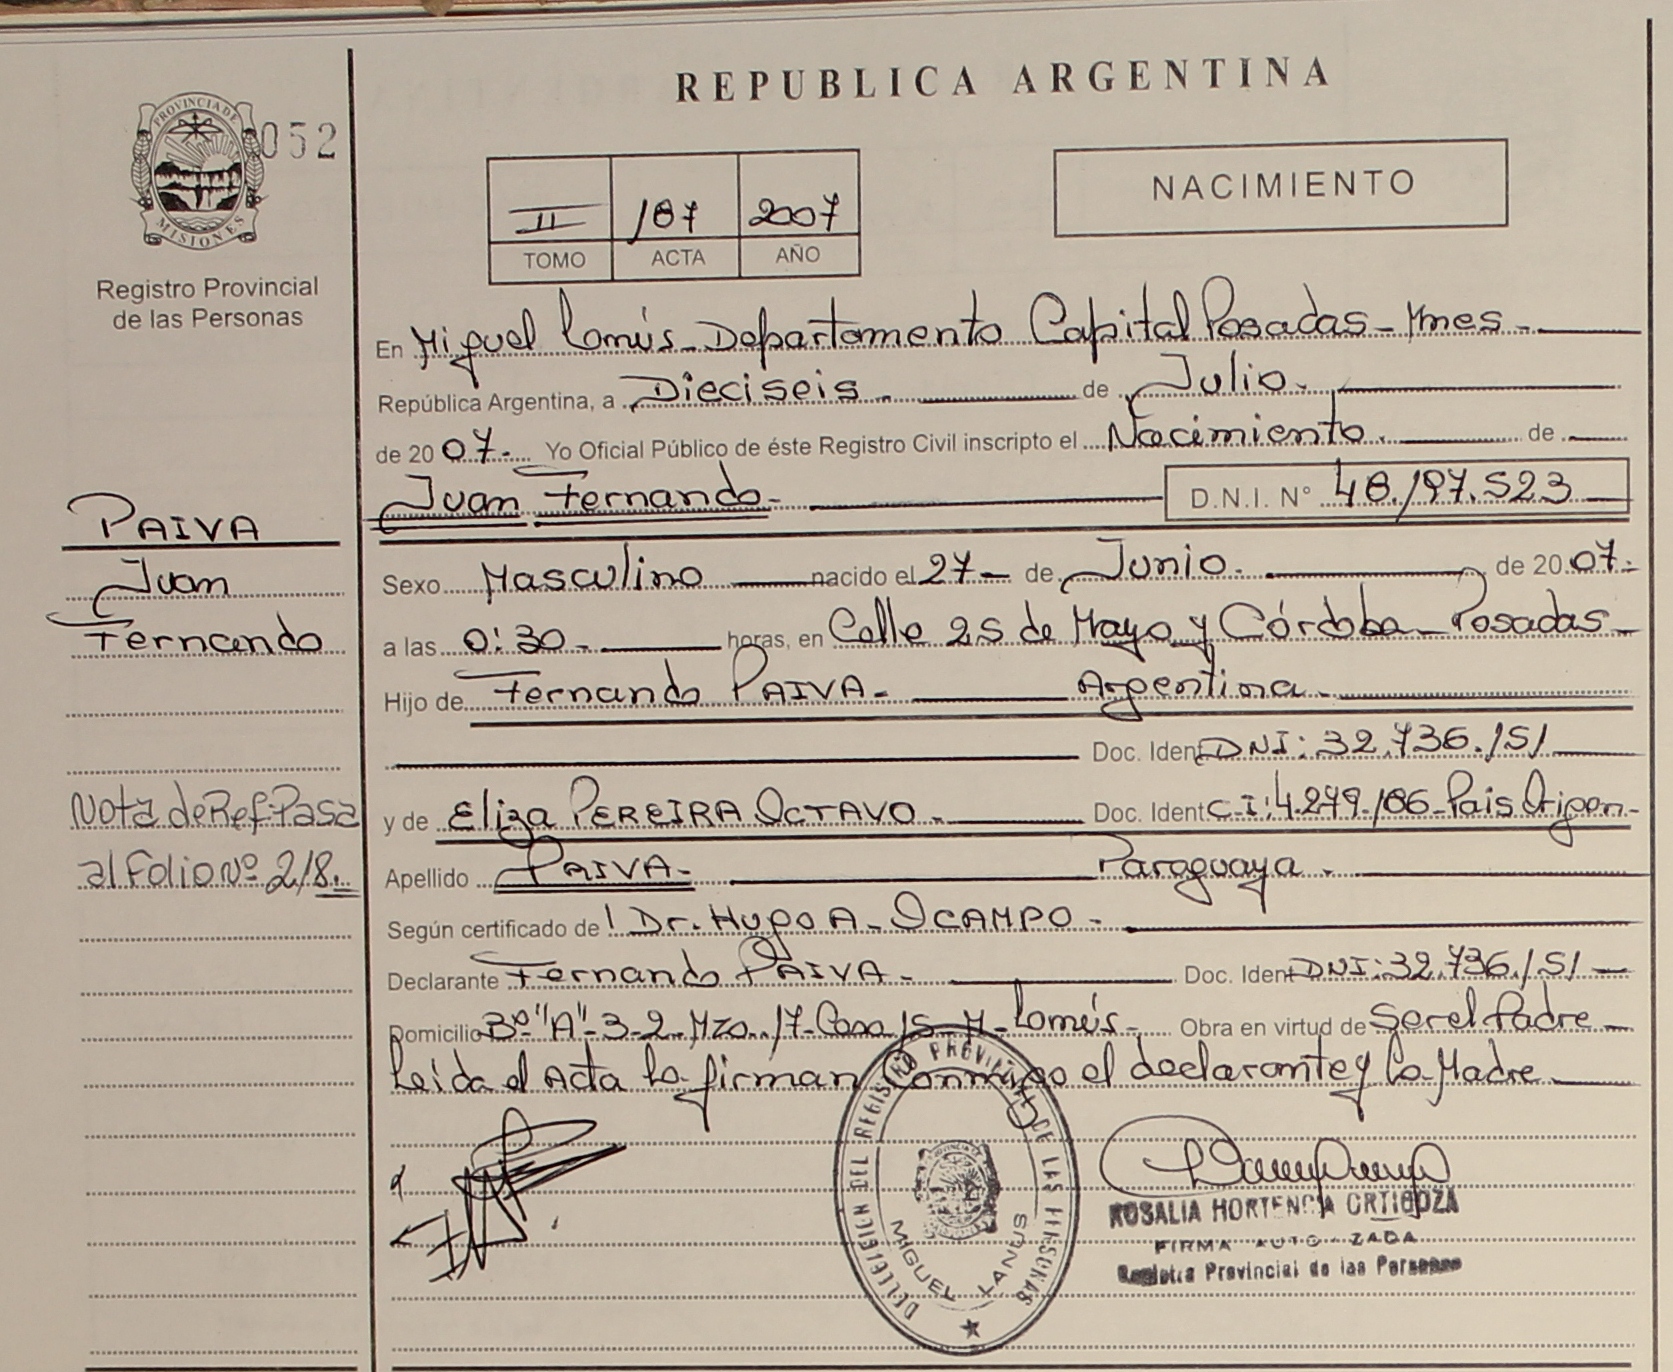 REPUBLICA ARGENTINA
PROVINCIA DE
MISIONES
052
Registro Provincial
de las Personas
II 187 2007
TOMO ACTA AÑO
NACIMIENTO
En Miguel Lanús - Departamento Capital Posadas - Mnes -
República Argentina, a Dieciseis - de Julio -
de 2007 - Yo Oficial Público de éste Registro Civil inscripto el Nacimiento - de
Juan Fernando - D.N.I. N° 48.197.523
PAIVA
Juan
Fernando
Sexo Masculino nacido el 27 - de Junio - de 2007 -
a las 0:30 - horas, en Calle 25 de Mayo y Córdoba - Posadas -
Hijo de Fernando PAIVA - Argentina -
Doc. Ident DNI: 32.736.151
y de Eliza PEREIRA OCTAVO - Doc. Ident C.I: 4.249.186 - Pais Origen -
Nota de Ref - Pasa
al Folio Nº 218.
Apellido PAIVA - Paraguaya -
Según certificado de l Dr. Hugo A - OCAMPO -
Declarante Fernando PAIVA - Doc. Ident DNI: 32.736.151 -
Domicilio Bº "A" - 3-2 - Mza. 17 - Casa 15 - M - Lanús - Obra en virtud de Ser el Padre -
Leida el Acta la firman Conmigo el declarante y la Madre
DELEGACION DEL REGISTRO PROVINCIAL DE LAS PERSONAS
MIGUEL LANUS
ROSALIA HORTENCIA ORTIGOZA
FIRMA AUTORIZADA
Registro Provincial de las Personas